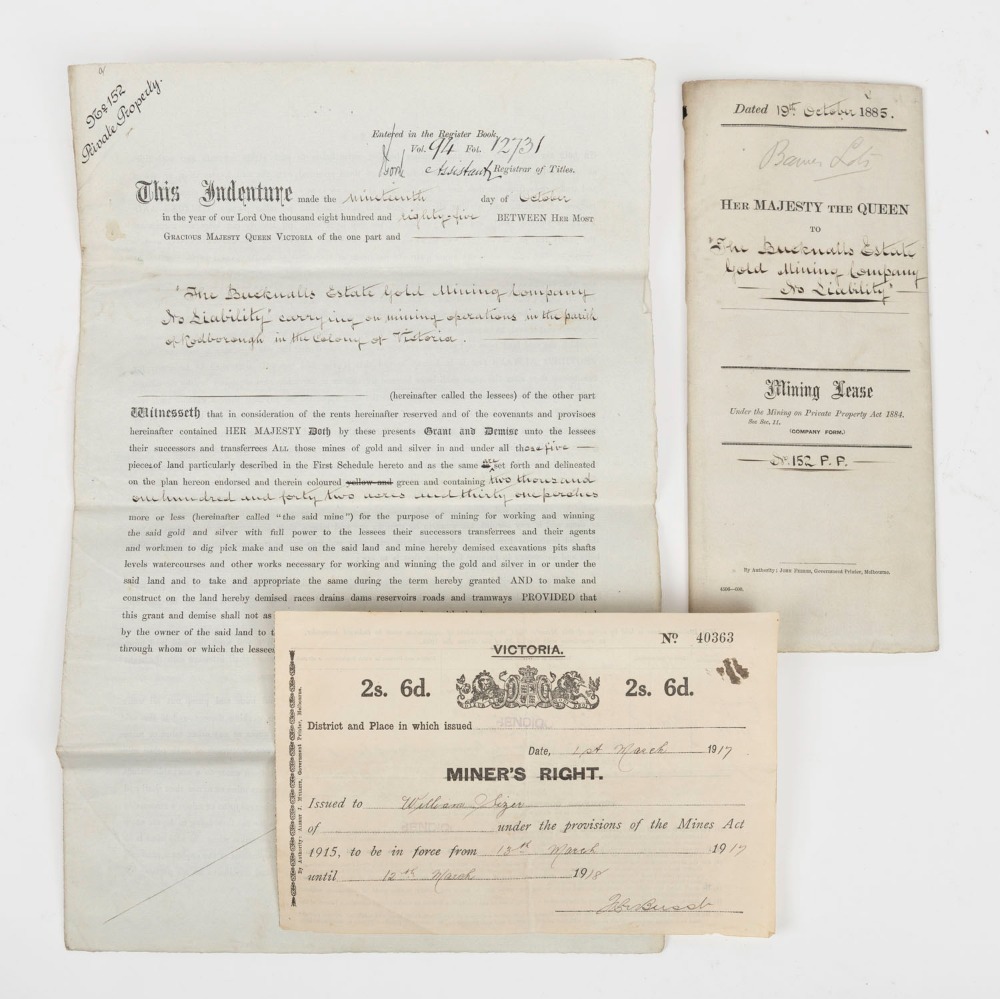 No. 152
Private Property.
Entered in the Register Book,
Vol. 94 Fol. 12731
Assistant Registrar of Titles.
This Indenture made the nineteenth day of October
in the year of our Lord One thousand eight hundred and eighty-five BETWEEN HER MOST
GRACIOUS MAJESTY QUEEN VICTORIA of the one part and
"The Bucknalls Estate Gold Mining Company
No Liability" carrying on mining operations in the parish
of Rodborough in the Colony of Victoria.
(hereinafter called the lessees) of the other part
Witnesseth that in consideration of the rents hereinafter reserved and of the covenants and provisoes
hereinafter contained HER MAJESTY Doth by these presents Grant and Demise unto the lessees
their successors and transferees ALL those mines of gold and silver in and under all those five
pieces of land particularly described in the First Schedule hereto and as the same are set forth and delineated
on the plan hereon endorsed and therein coloured yellow and green and containing two thousand
one hundred and forty two acres and thirty one perches
more or less (hereinafter called "the said mine") for the purpose of mining for working and winning
the said gold and silver with full power to the lessees their successors transferees and their agents
and workmen to dig pick make and use on the said land and mine hereby demised excavations pits shafts
levels watercourses and other works necessary for working and winning the gold and silver in or under the
said land and to take and appropriate the same during the term hereby granted AND to make and
construct on the land hereby demised races drains dams reservoirs roads and tramways PROVIDED that
this grant and demise shall not as
by the owner of the said land to
through whom or which the lessee
Dated 19th October 1885.
HER MAJESTY THE QUEEN
TO
"The Bucknalls Estate
Gold Mining Company
No Liability"
Mining Lease
Under the Mining on Private Property Act 1884.
See Sec. 11.
(COMPANY FORM.)
No. 152 P. P.
By Authority: JOHN FERRES, Government Printer, Melbourne.
No 40363
VICTORIA.
2s. 6d. 2s. 6d.
District and Place in which issued BENDIGO
Date, 1st March 1917
MINER'S RIGHT.
Issued to William Sizer
of BENDIGO under the provisions of the Mines Act
1915, to be in force from 13th March 1917
until 12th March 1918
By Authority: ALBERT J. MULLETT, Government Printer, Melbourne.